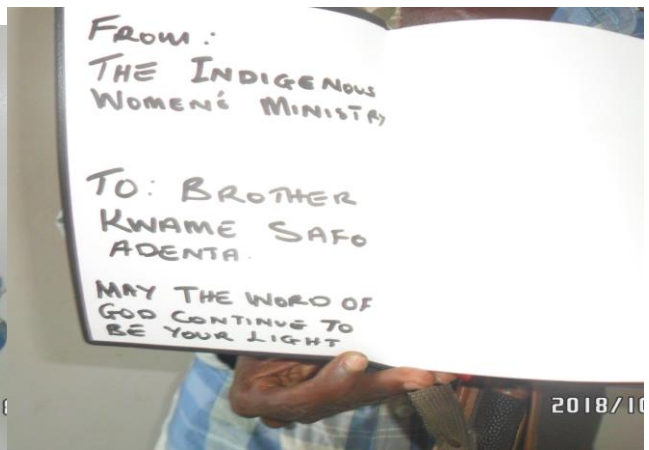 FROM:
THE INDIGENOUS
WOMEN'S MINISTRY
TO: BROTHER
KWAME SAFO
ADENTA.
MAY THE WORD OF
GOD CONTINUE TO
BE YOUR LIGHT
2018/10